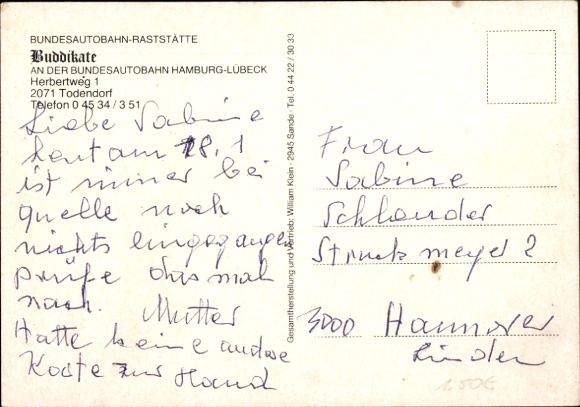 BUNDESAUTOBAHN-RASTSTÄTTE
Buddikate
AN DER BUNDESAUTOBAHN HAMBURG-LÜBECK
Herbertweg 1
2071 Todendorf
Telefon 0 45 34 / 3 51
Liebe Sabine
heut am 18.1
ist immer bei
Quelle noch
nichts eingegangen
prüfe das mal
nach. Mutter
Hatte keine andere
Karte zur Hand
Gesamtherstellung und Vertrieb: William Klein · 2945 Sande · Tel. 0 44 22 / 30 33
Frau
Sabine
Schlender
3000 Hannover
Linden
1.50€